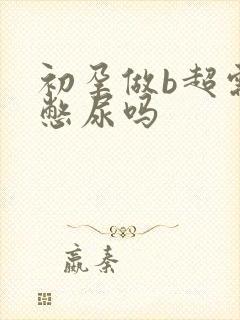 初孕做b超需
憋尿吗
嬴秦